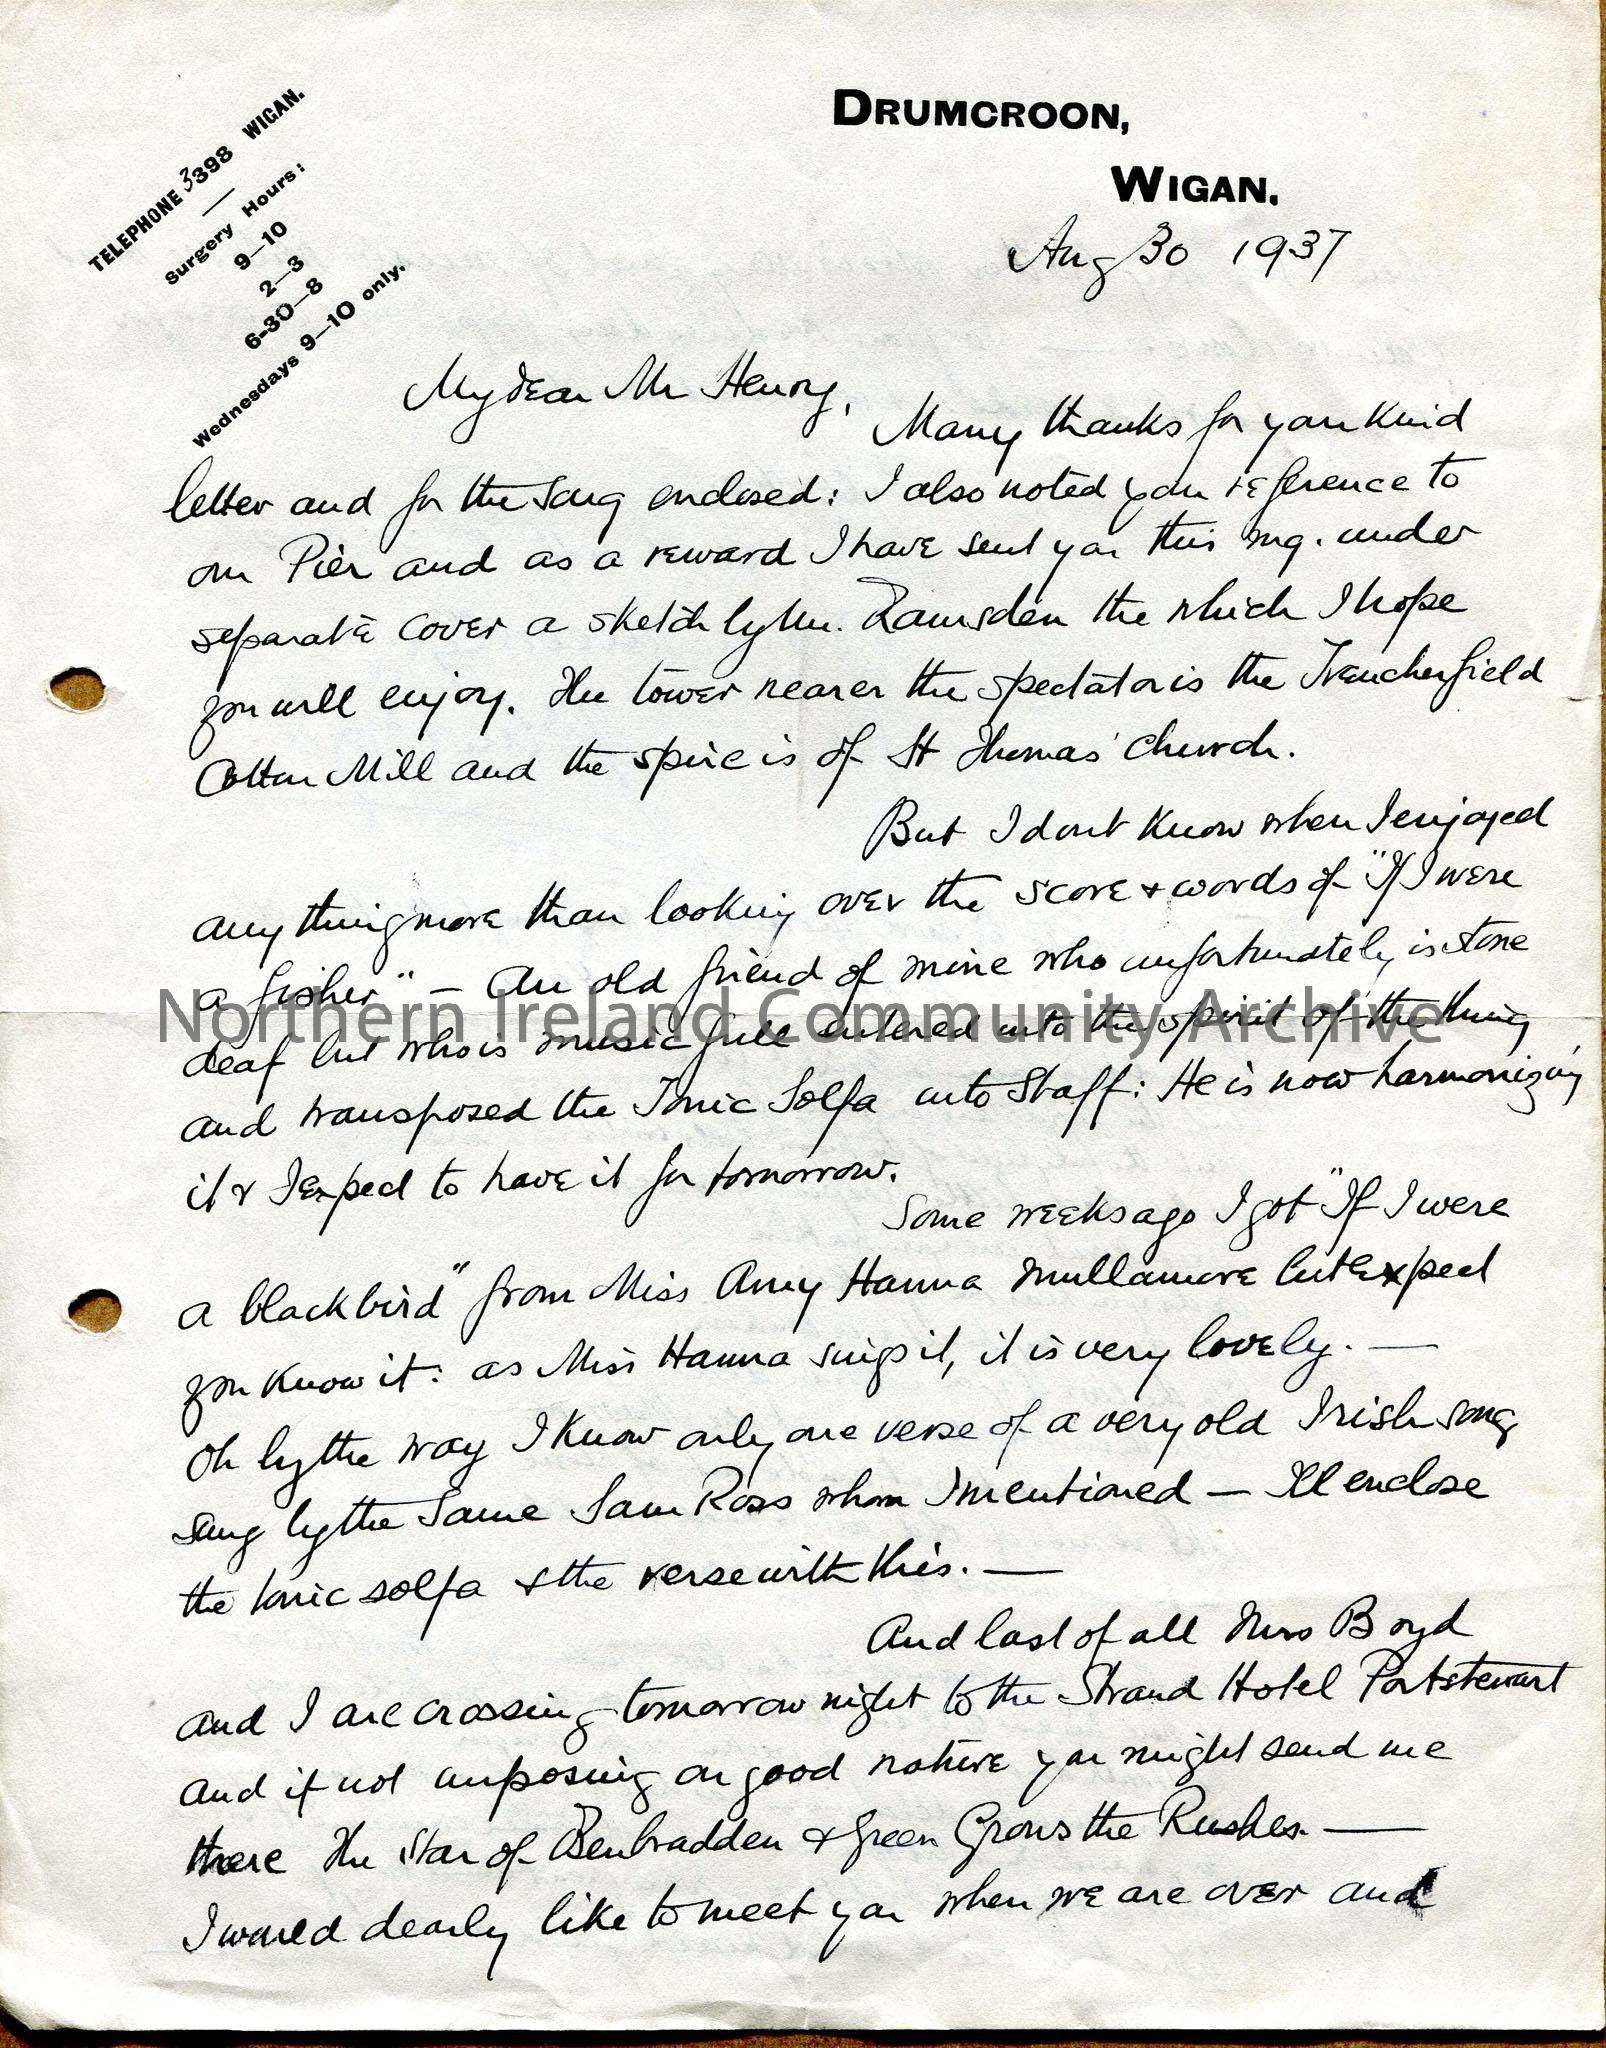 TELEPHONE 3398 WIGAN.
Surgery Hours:
9–10
2–3
6-30–8
Wednesdays 9–10 only.
DRUMCROON,
WIGAN.
Aug 30 1937
My dear Mr Henry,
Many thanks for your kind
letter and for the song enclosed: I also noted your reference to
our Pier and as a reward I have sent you this mg. under
separate cover a sketch by Mr. Ramsden the which I hope
you will enjoy. The tower nearer the spectator is the Trencherfield
Cotton Mill and the spire is of St Thomas' Church.
But I dont know when I enjoyed
anything more than looking over the score & words of "If I were
a fisher" – An old friend of mine who unfortunately is stone
deaf but who is music full entered into the spirit of the thing
and transposed the Tonic Solfa into Staff: He is now harmonizing
it & I expect to have it for tomorrow.
Some weeks ago I got "If I were
a blackbird" from Miss Amy Hanna Mullamore but expect
you know it: as Miss Hanna sings it, it is very lovely. —
Oh by the way I know only one verse of a very old Irish song
sung by the same Sam Ross whom I mentioned – I'll enclose
the tonic solfa & the verse with this. —
And last of all Mrs Boyd
and I are crossing tomorrow night to the Strand Hotel Portstewart
and if not imposing on good nature you might send me
there The Star of Benbradden & Green Grows the Rushes. —
I would dearly like to meet you when we are over and
Northern Ireland Community Archive